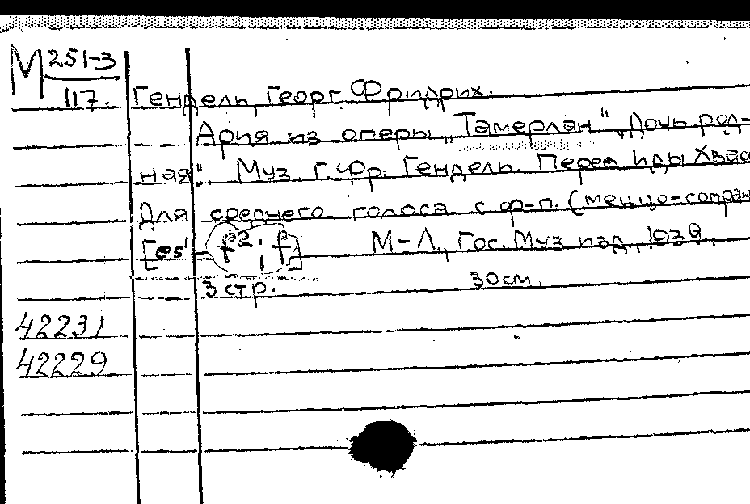 М 251-3
117.
Гендель, Георг Фридрих.
Ария из оперы „Тамерлан" „Дочь род-
ная". Муз. Г. Фр. Гендель. Перев Иды Хвас
Для среднего голоса с ф-п. (меццо-сопран
М-Л., Гос. Муз изд, 1939.
3 стр. 30 см.
42231
42229